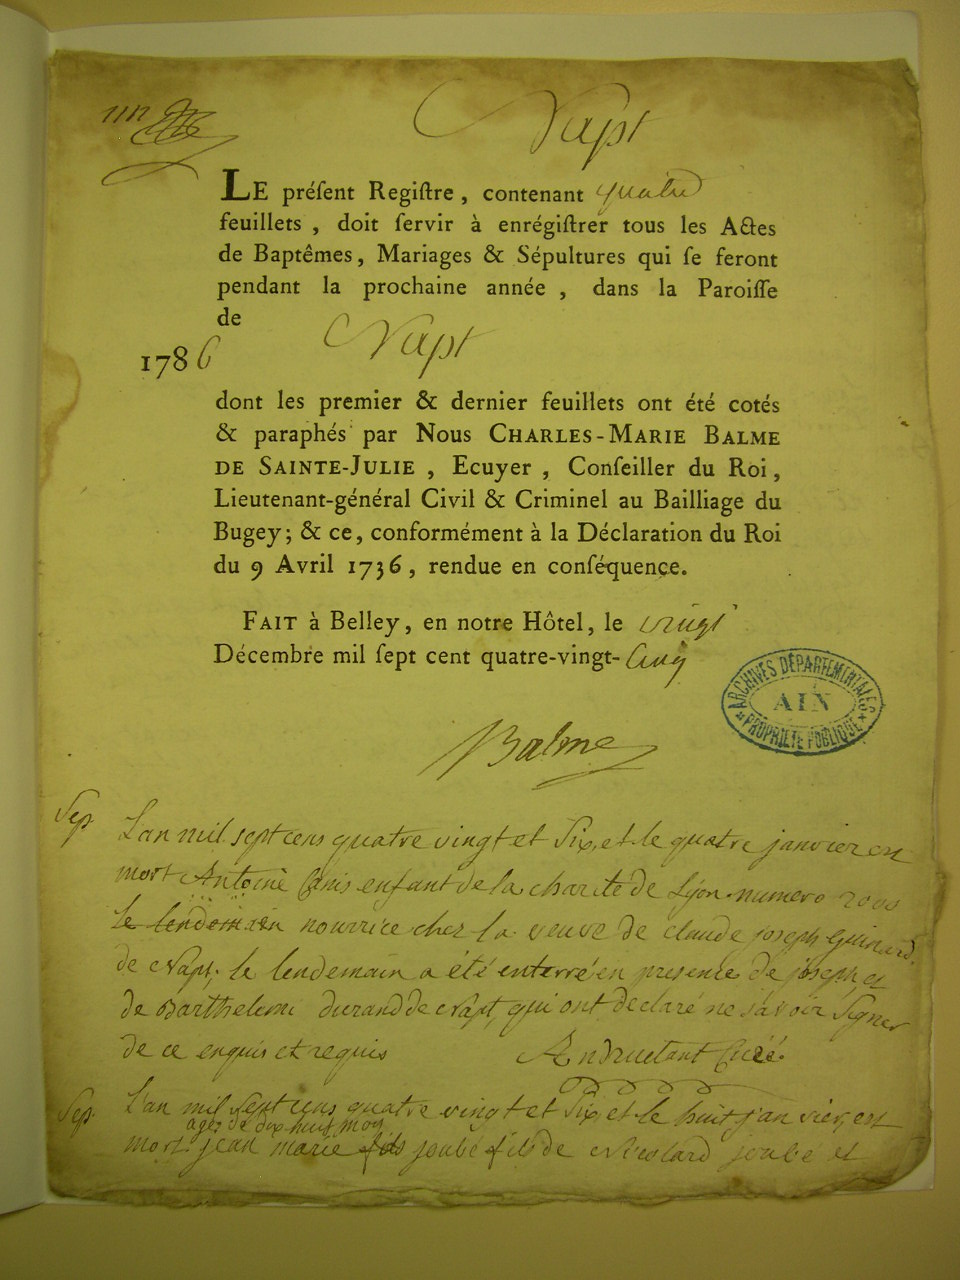 Napt
LE préſent Regiſtre, contenant quatre
feuillets, doit ſervir à enrégiſtrer tous les Actes
de Baptêmes, Mariages & Sépultures qui ſe feront
pendant la prochaine année, dans la Paroiſſe
de
Napt
1786
dont les premier & dernier feuillets ont été cotés
& paraphés par Nous CHARLES-MARIE BALME
DE SAINTE-JULIE, Ecuyer, Conſeiller du Roi,
Lieutenant-général Civil & Criminel au Bailliage du
Bugey; & ce, conformément à la Déclaration du Roi
du 9 Avril 1736, rendue en conſéquence.
FAIT à Belley, en notre Hôtel, le vingt
Décembre mil ſept cent quatre-vingt-cinq
ARCHIVES DÉPARTEMENTALES
AIN
PROPRIÉTÉ PUBLIQUE
Balme
Sep. L'an mil sept cens quatre vingt et six, et le quatre janvier est
mort Antoine enfant de la charite de Lyon numero 2000
le lendemain nourrice chez la veuve de claude joseph Guinard
de Napt, le lendemain a été enterré en presence de joseph, et
de Barthelemi durand de Napt, qui ont declaré ne savoir signer
de ce enquis et requis Andruetant Curé.
Sep. L'an mil sept cens quatre vingt et six et le huit janvier, est
agez de dix huit moy
mort jean marie fils joube fils de Nicolard joube et